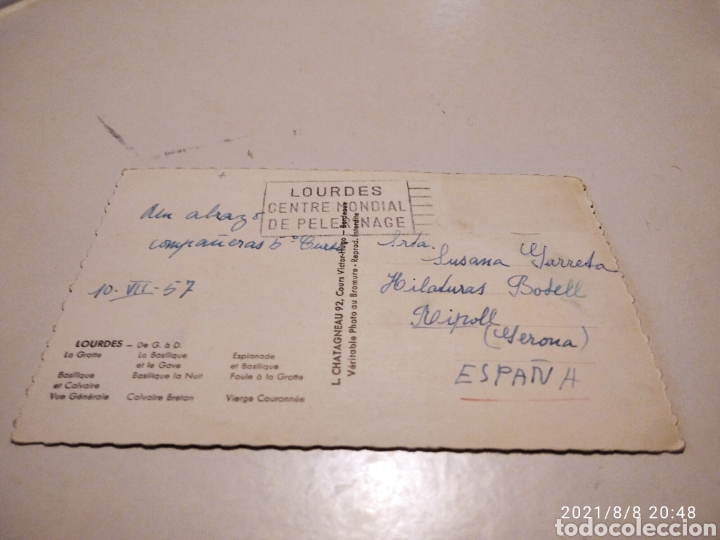 LOURDES
CENTRE MONDIAL
DE PELERINAGE
Un abrazo
compañeras 5º Curso
10-VII-57
LOURDES – De G. à D.
La Grotte La Basilique et le Gave Esplanade et Basilique
Basilique et Calvaire Basilique la Nuit Foule à la Grotte
Vue Générale Calvaire Breton Vierge Couronnée
L. CHATAGNEAU 92, Cours Victor-Hugo - Bordeaux
Véritable Photo au Bromure - Reprod. Interdite
Srta.
Susana Garreta
Hilaturas Botell
Ripoll
(Gerona)
ESPAÑA
2021/8/8 20:48
todocoleccion